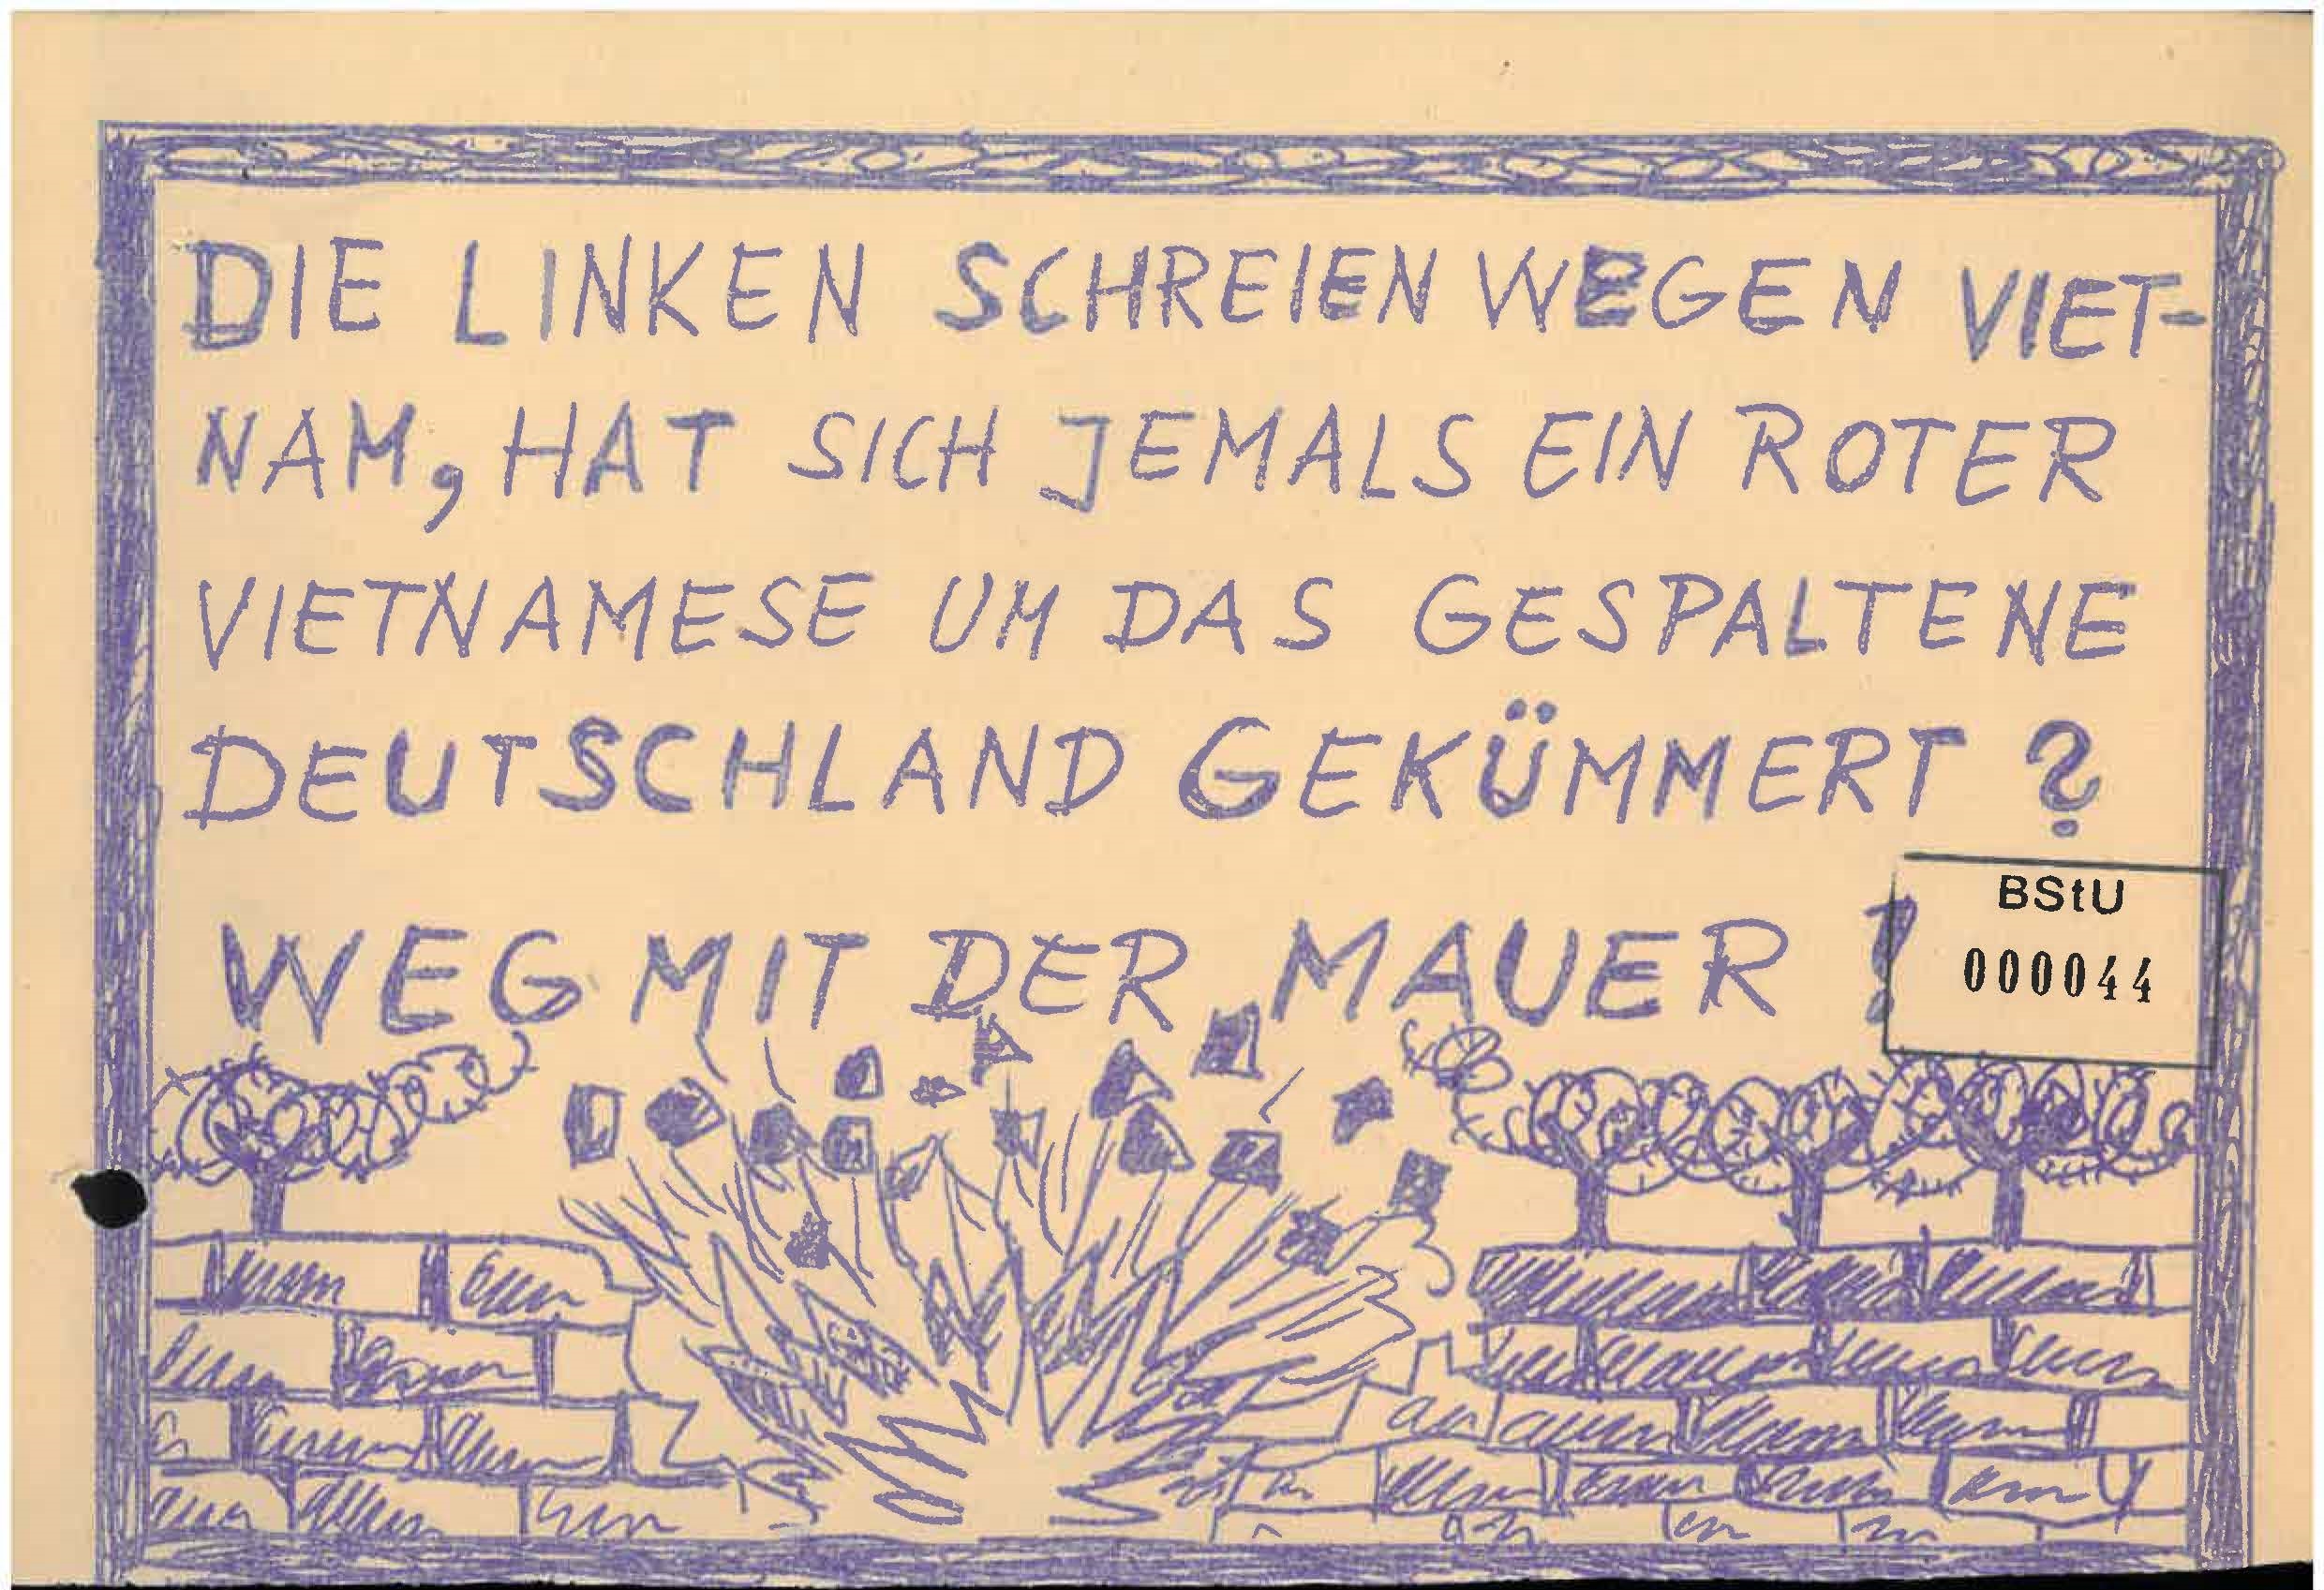 DIE LINKEN SCHREIEN WEGEN VIET-
NAM, HAT SICH JEMALS EIN ROTER
VIETNAMESE UM DAS GESPALTENE
DEUTSCHLAND GEKÜMMERT ?
WEG MIT DER MAUER !
BStU
000044